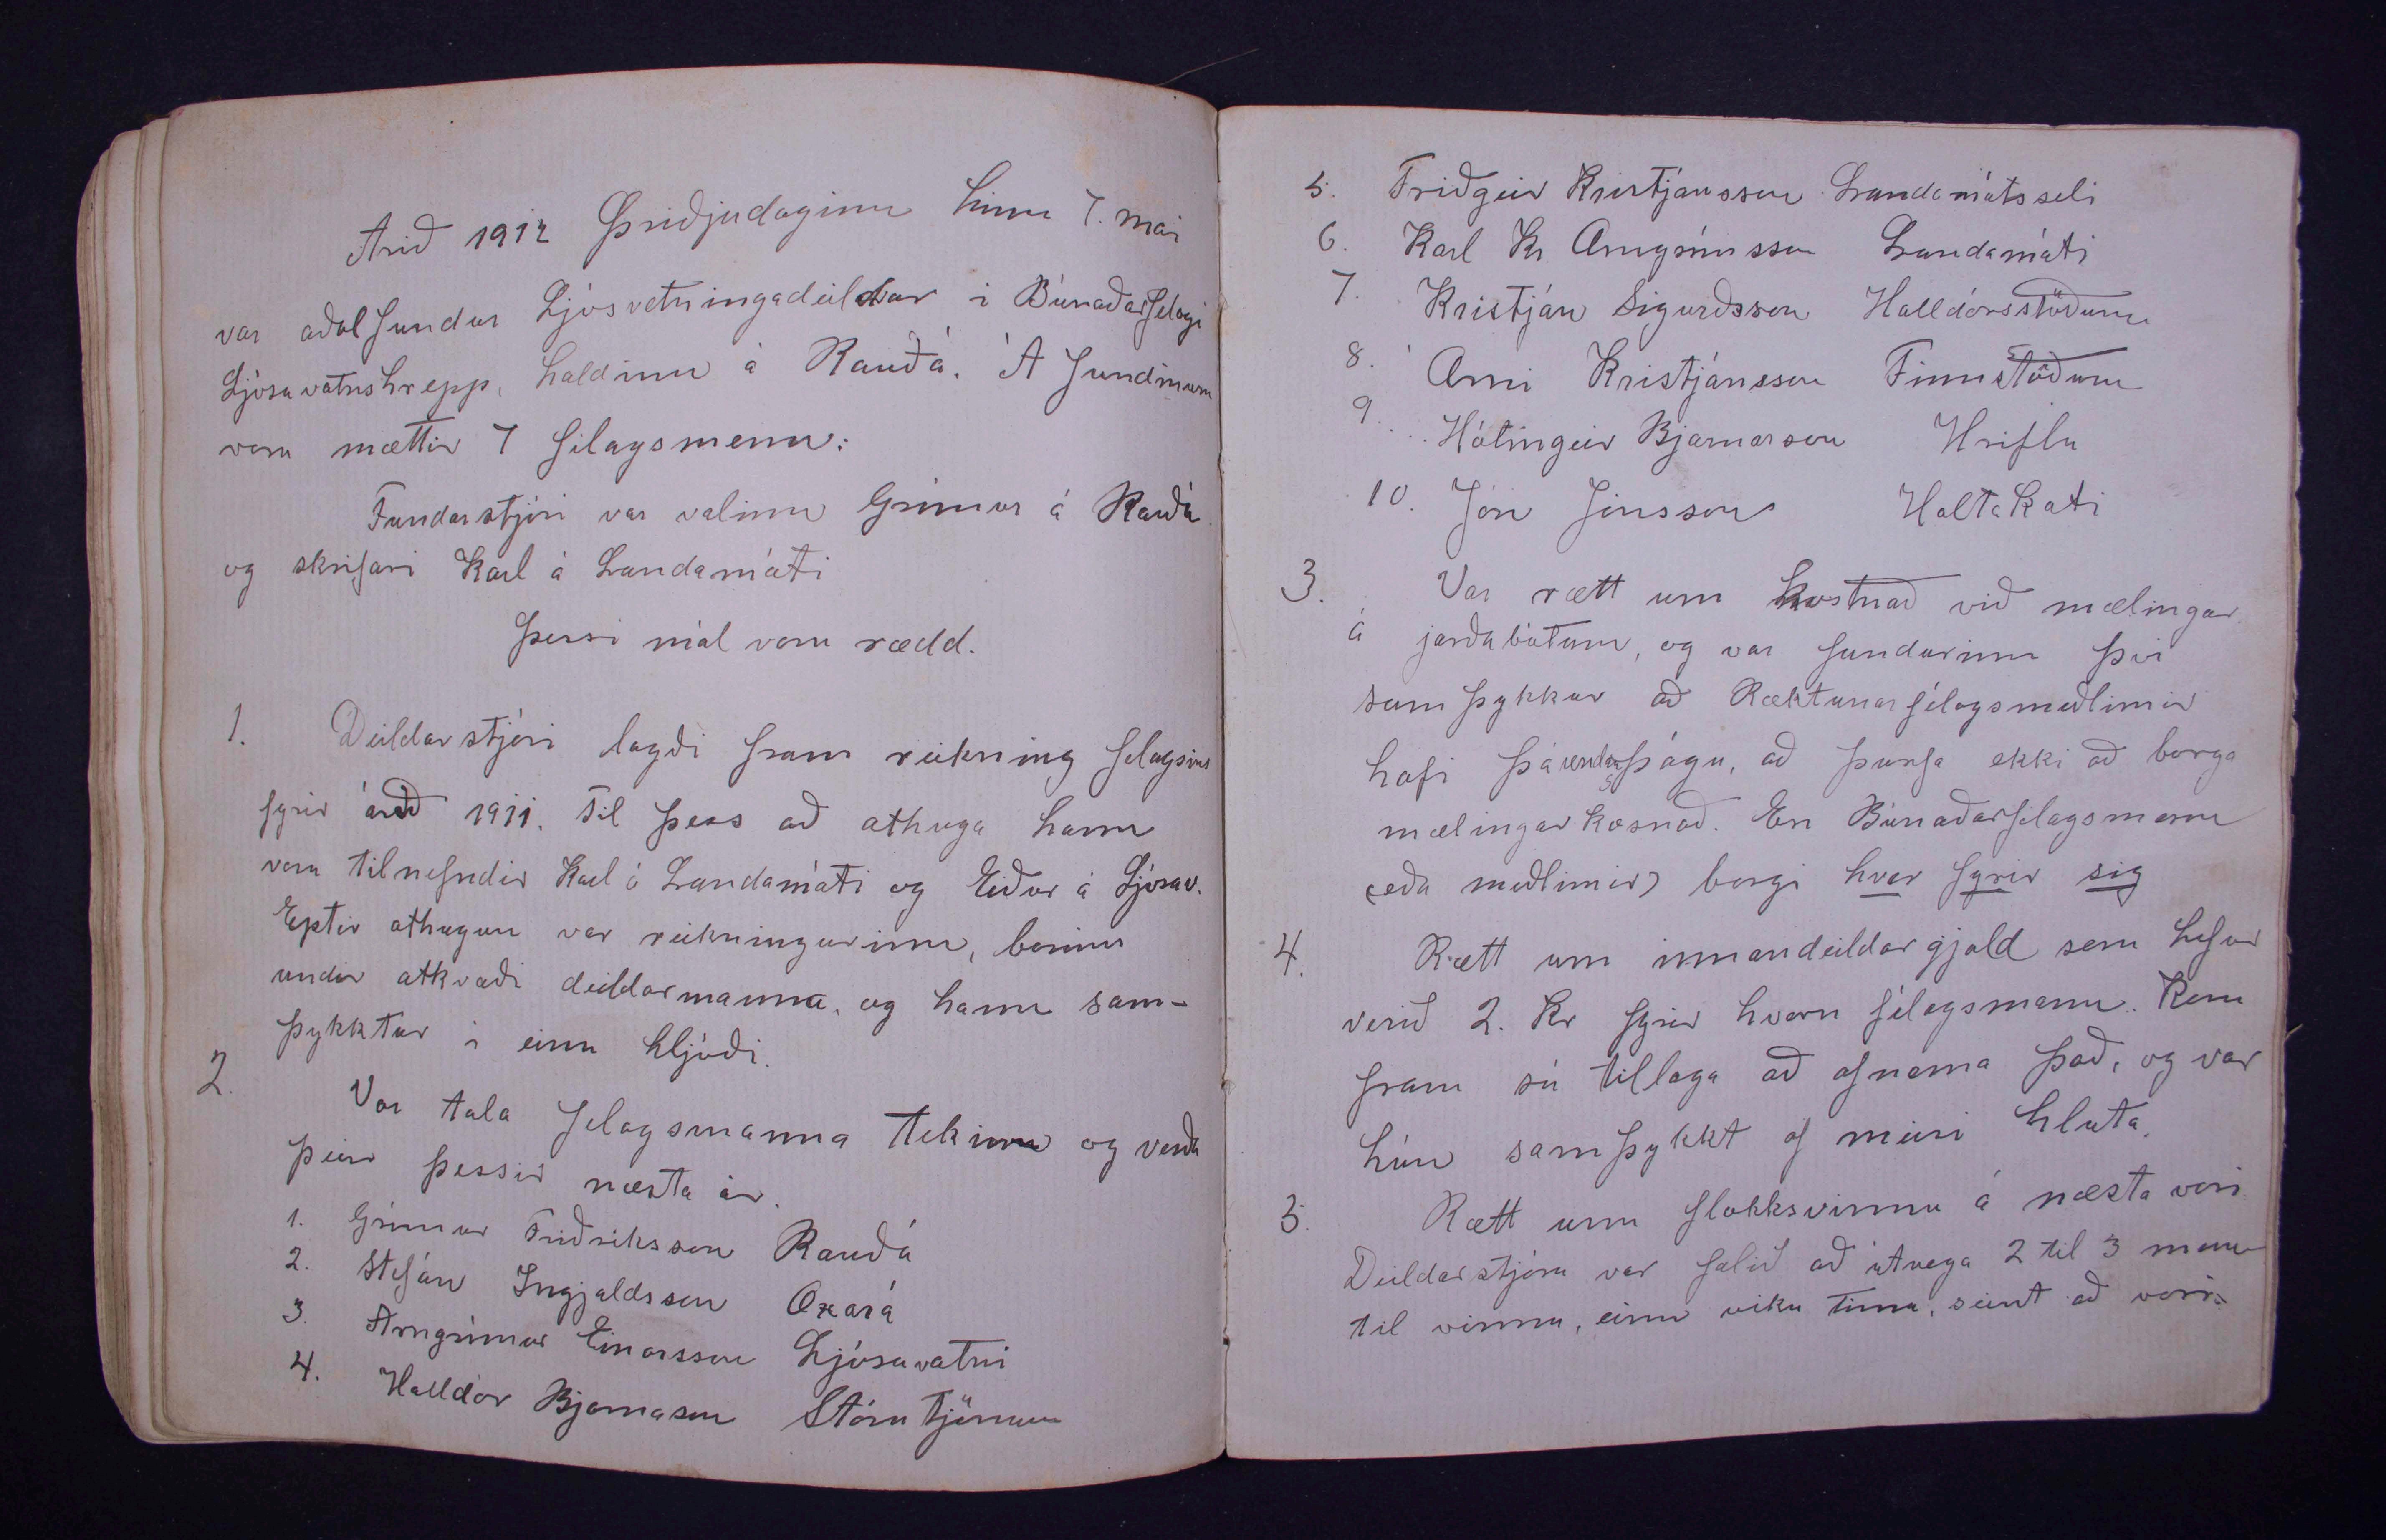 Árið 1912 Þriðjudaginn hinn 7. mai
var aðalfundur Ljósvetningadeildar i Búnaðarfelagi
Ljósavatnshrepp, haldinn á Rauðá. Á fundinum
voru mættir 7 félagsmenn:
Fundarstjóri var valinn Grímur á Rauðá
og skrifari Karl á Landamóti
Þessi mál voru rædd.
1. Deildarstjóri lagði fram reikning felagsins
fyrir árið 1911. Til þess að athuga hann
voru tilnefndir Karl á Landamóti og Eiður á Ljósav.
Eptir athugun var reikningurinn, borinn
undir atkvæði deildarmanna, og hann sam-
þykktur i einu hljóði.
2. Var tala felagsmanna tekin og verða
þeir þessir næsta ár.
1. Grímur Friðriksson Rauðá
2. Stefán Ingjaldsson Oxará
3. Arngrímur Einarsson Ljósavatni
4. Halldór Bjarnason Stóru tjörnum
5. Friðgeir Kristjánsson Landamótsseli
6. Karl Kr Arngrímsson Landamóti
7. Kristján Sigurðsson Halldórsstöðum
8. Árni Kristjánsson Finnstöðum
9. Hólmgeir Bjarnarson Hriflu
10. Jón Jónsson Holtakoti
3. Var rætt um kostnað við mælingar
á jarðabótum, og var fundurinn því
samþykkur að Ræktunarfélagsmeðlimir
hafi þá undanþágu, að þurfa ekki að borga
mælingarkosnað. En Búnaðarfélagsmenn
(eða meðlimir) borgi hver fyrir sig
4. Rætt um innandeildargjald sem hefur
verið 2. Kr fyrir hvern félagsmann. Kom
fram sú tillaga að afnema það, og var
hún samþykkt af meiri hluta.
5. Rætt um flokksvinnu á næsta vori
Deildarstjóra var falið að útvega 2 til 3 menn
til vinnu, einn viku tíma, seint að vori.